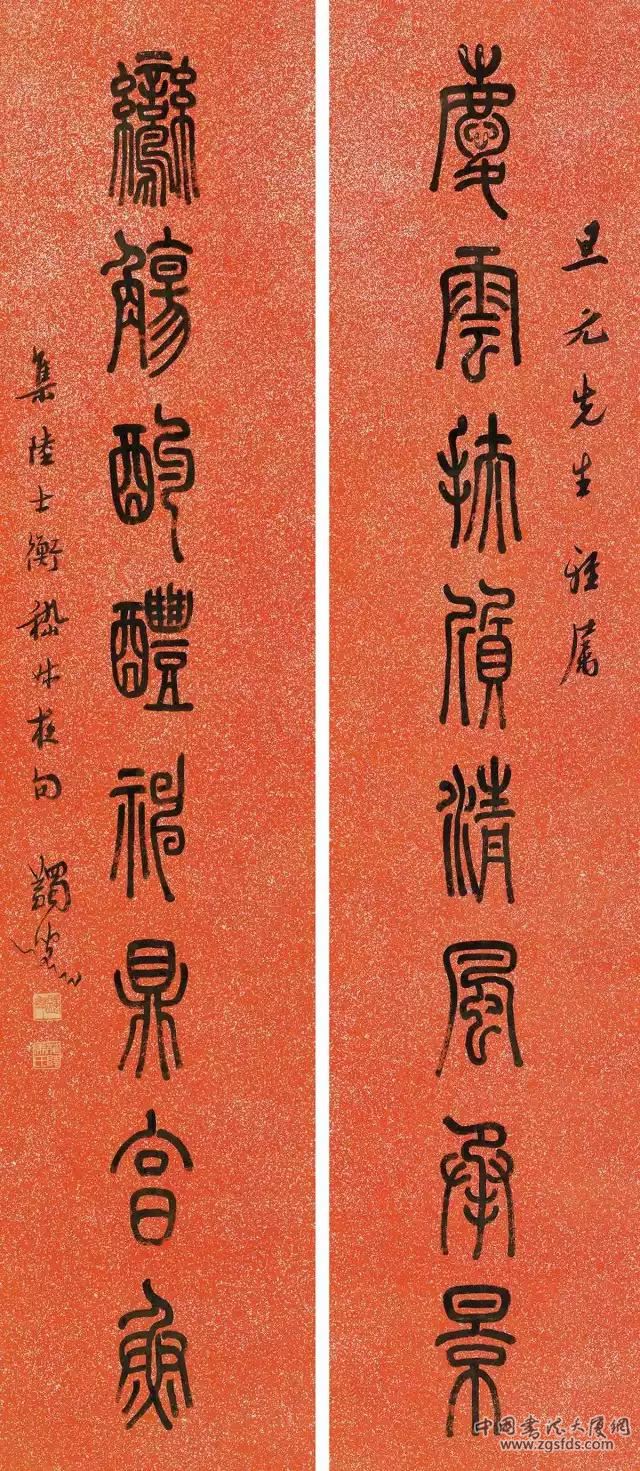 旦元先生雅屬
慶雲扶質清風承景
鸞觴酌醴神鼎亯魚
集陸士衡嵇叔夜句 蠲叟
中国书法大厦網
www.zgsfds.com